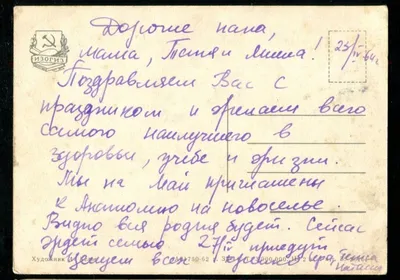 Дорогие папа,
мама, Петя и Миша!
25/IV 64г.
ИЗОГИЗ
Поздравляем Вас с
праздником и желаем всего
самого наилучшего в
здоровьи, учебе и жизни.
Мы на Май приглашены
к Анатолию на новоселье.
Видно вся родня будет. Сейчас
ждет семью 27/IV приедут
Целуем всех
Художник
Наташа